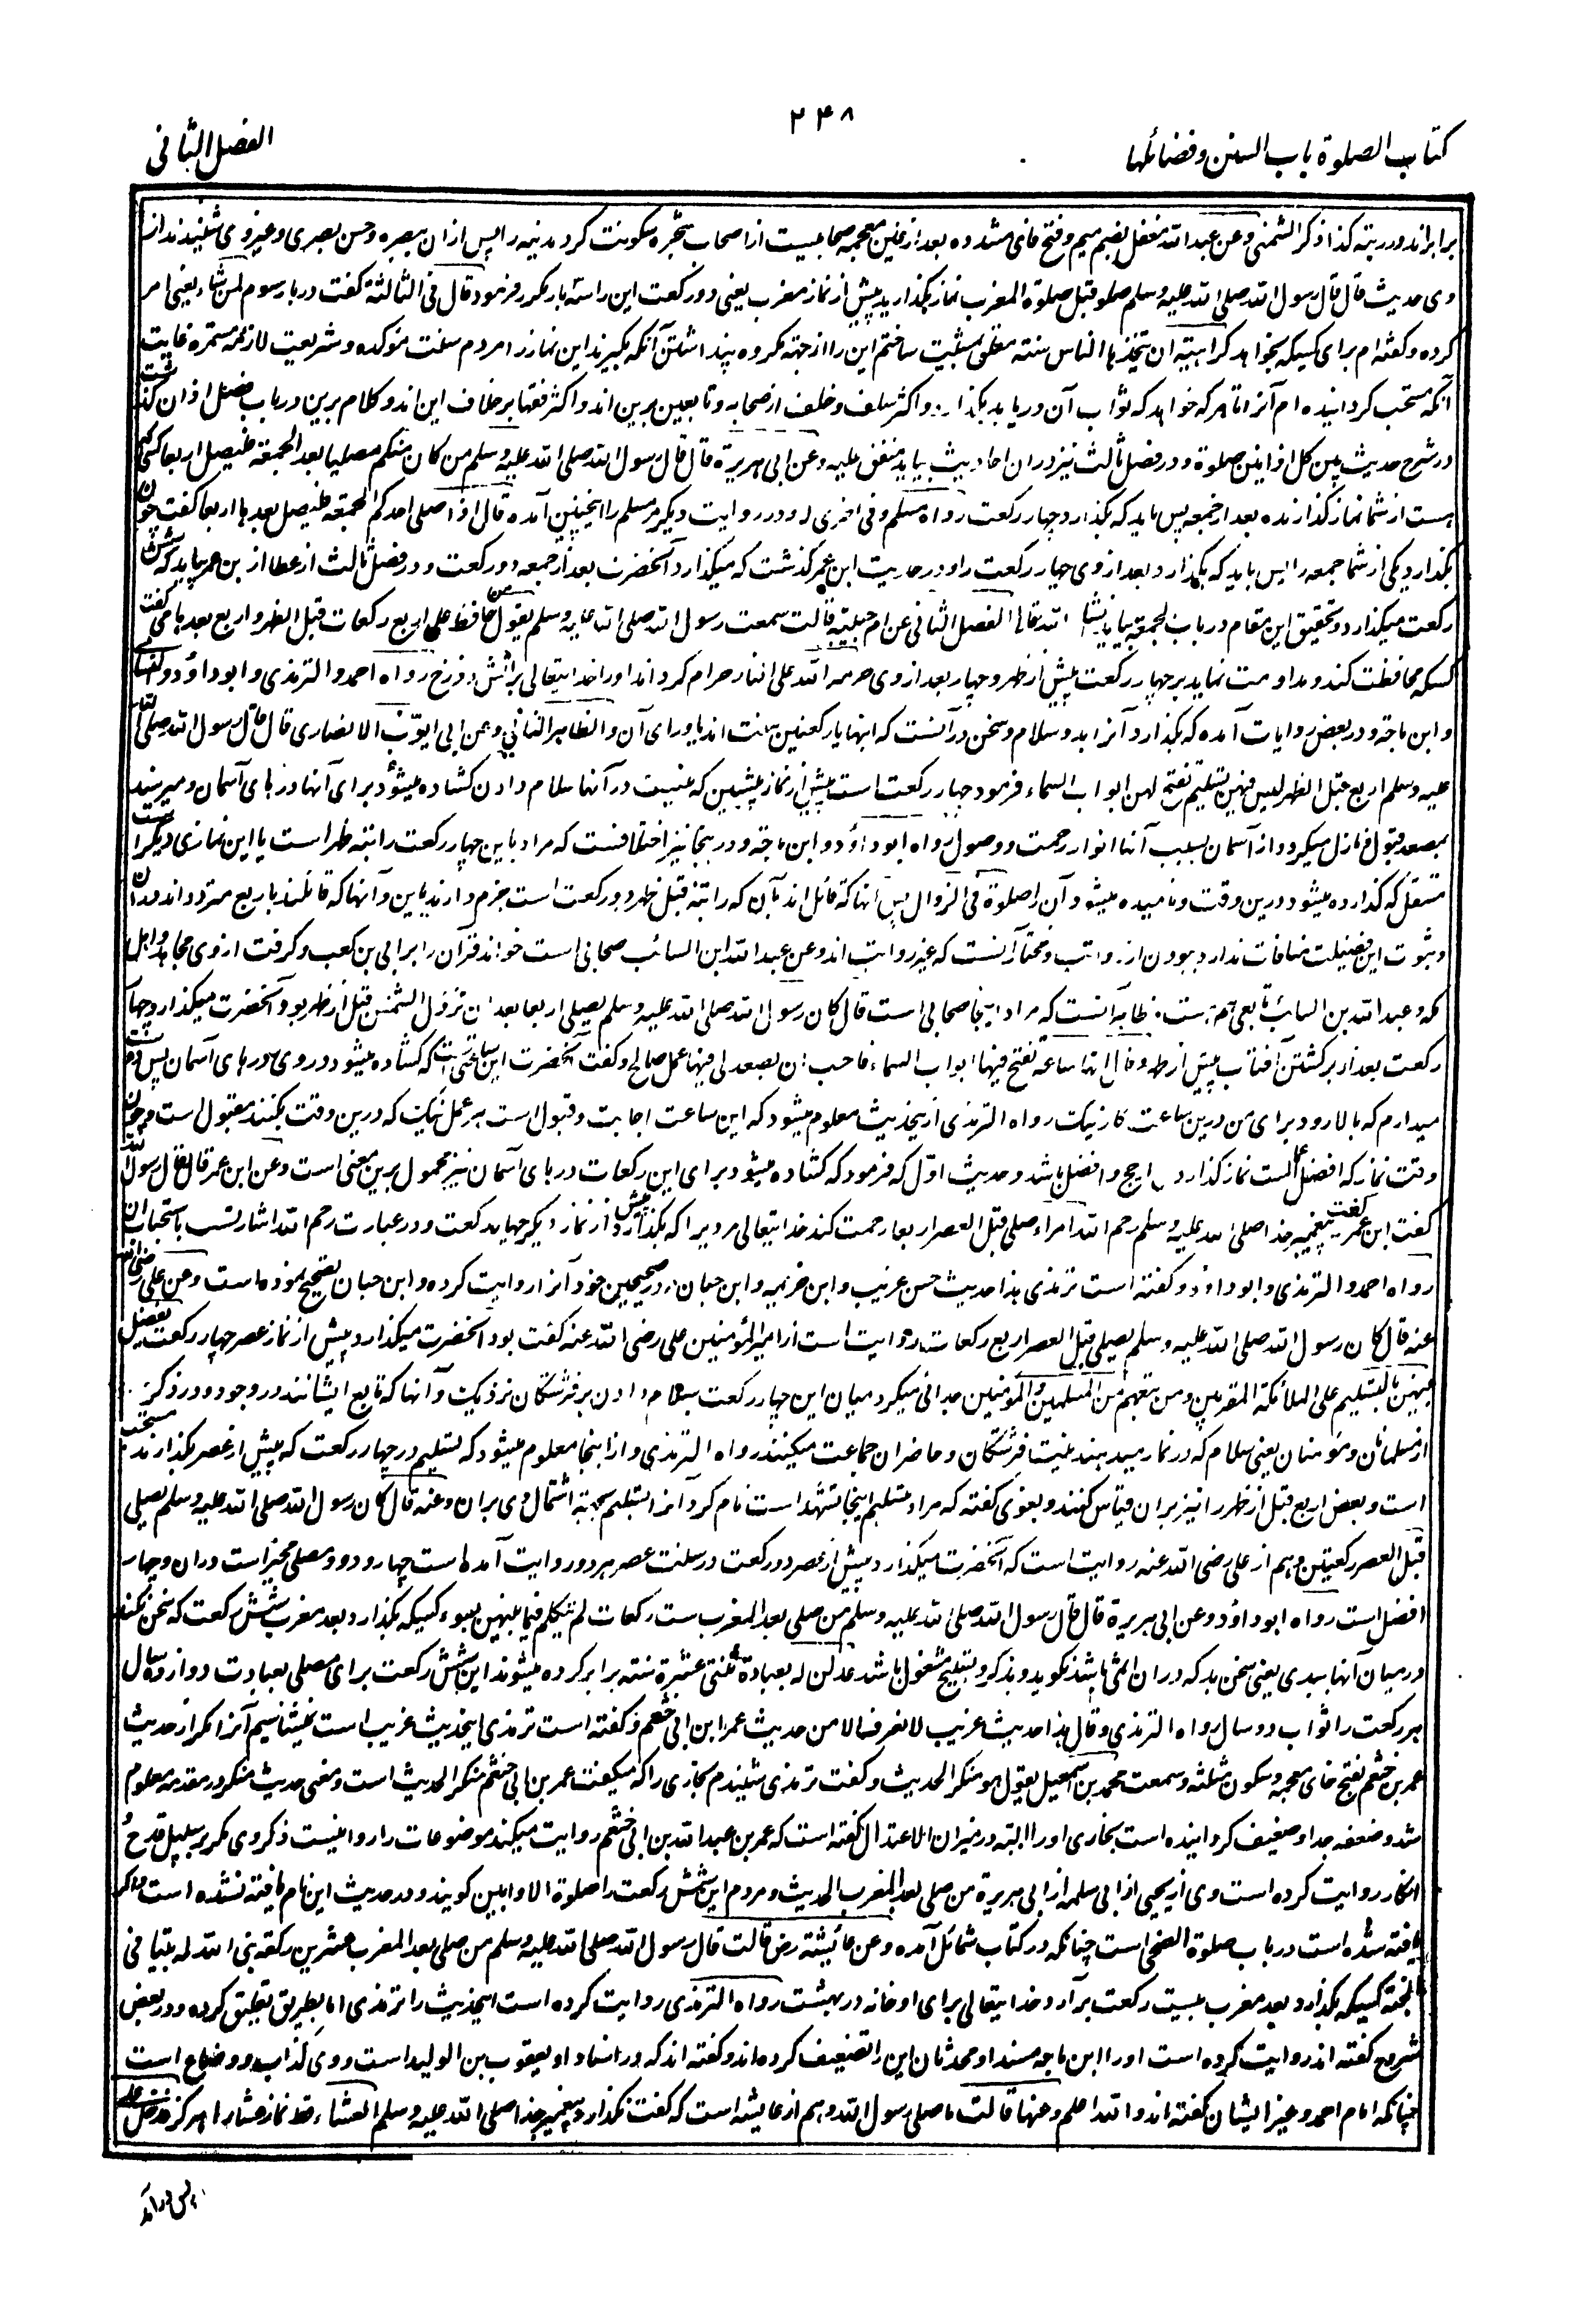 ۲۴۸
کتاب الصلوة باب السنن وفضائلها
الفصل الثانی
برابراند در رتبه کذا ذکر الشمنی وعن عبدالله مغفل بضم میم وفتح فای مشدده بعد از غین معجمه صحابیست از اصحاب شجره سکونت کرد مدینه را پس ازان ببصره وحسن بصری وغیر وی شنیدند از
وی حدیث قال قال رسول الله صلی الله علیه وسلم صلوا قبل صلوة المغرب نماز بگذارید پیش از نماز مغرب یعنی دو رکعت این را سه بار مکرر فرمود قال فی الثالثة گفت در بار سوم لمن شاء یعنی امر
کرده و گفته ام برای کسیکه بخواهد کراهیة ان یتخذها الناس سنة متعلق بمشیت ساختم این را از جهة مکروه پنداشتن آنکه بگیرند این نماز را مردم سنت موکده وشریعت لازمه مستمره غایت
آنکه مستحب گردانیده ام آنرا تا هر که خواهد که ثواب آن دریابد بگذارد و اکثر سلف وخلف از صحابه وتابعین برین اند و اکثر فقها برخلاف این اند وکلام برین در باب فضل اذان گذشت
در شرح حدیث بین کل اذانین صلوة ودر فصل ثالث نیز دران احادیث بیاید متفق علیه وعن ابی هریرة قال قال رسول الله صلی الله علیه وسلم من کان منکم مصلیا بعد الجمعة فلیصل اربعا کسیکه
هست از شما نماز گذارنده بعد از جمعه پس باید که بگذارد چهار رکعت رواه مسلم وفی اخری له ودر روایت دیگر مر مسلم را اینچنین آمده قال اذا صلی احدکم الجمعة فلیصل بعدها اربعا گفت چون
بگذارد یکی از شما جمعه را پس باید که بگذارد بعد از وی چهار رکعت را ودر حدیث ابن عمر گذشت که میگذارد آنحضرت بعد از جمعه دو رکعت ودر فصل ثالث از عطا از بن عمر بیاید که شش
رکعت میگذارد وتحقیق این مقام در باب الجمعة بیاید انشاء الله تعالی الفصل الثانی عن ام حبیبة قالت سمعت رسول الله صلی الله علیه وسلم یقول من حافظ علی اربع رکعات قبل الظهر واربع بعدها گفت
کسیکه محافظت کند ومداومت نماید بر چهار رکعت پیش از ظهر وچهار بعد از وی حرمه الله علی النار حرام گرداند او را خدایتعالی بر آتش دوزخ رواه احمد والترمذی وابو داؤد والنسائی
وابن ماجة ودر بعض روایات آمده که بگذارد آنرا بدو سلام وسخن در آنست که اینها با رکعتین سنت اند یا ورای آن والظاهر الثانی وعن ابی ایوب الانصاری قال قال رسول الله صلی الله
علیه وسلم اربع قبل الظهر لیس فیهن تسلیم تفتح لهن ابواب السماء فرمود چهار رکعت است پیش از نماز پیشین که نیست در آنها سلام دادن کشاده میشود برای آنها درهای آسمان ومیرسند
بمصعد قبول ونازل میگردد از آسمان بسبب آنها انوار رحمت ووصول رواه ابو داؤد وابن ماجة ودرینجا نیز اختلافست که مراد باین چهار رکعت راتبه ظهر است یا این نمازی دیگرست
مستقل که گذارده میشود درین وقت ونامیده میشود آن را صلوة فی الزوال پس آنها که قائل اند بآن که راتبه قبل ظهر دو رکعت است جزم دارند باین وآنها که قائلند باربع متردد اند دران
وثبوت این فضیلت منافات ندارد ببودن از رواتب ومختار آنست که غیر رواتب اند وعن عبدالله ابن السائب صحابی است خواند قرآن را بر ابی بن کعب وگرفت از وی مجاهد واهل
مکه وعبدالله بن السائب تابعی هم هست ظاهر آنست که مراد اینجا صحابی است قال کان رسول الله صلی الله علیه وسلم یصلی اربعا بعد ان تزول الشمس قبل الظهر بود آنحضرت میگذارد چهار
رکعت بعد از برگشتن آفتاب پیش از ظهر وقال انها ساعة تفتح فیها ابواب السماء فاحب ان یصعد لی فیها عمل صالح وگفت آنحضرت این ساعتی است که کشاده میشود در وی درهای آسمان پس دوست
میدارم که بالا رود برای من درین ساعت کار نیک رواه الترمذی ازینحدیث معلوم میشود که این ساعت اجابت وقبول است هر عمل نیک که درین وقت بکنند مقبول است وچون
وقت نماز که افضل اعمال است نماز گذارد ارجح وافضل باشد وحدیث اول که فرمود که کشاده میشود برای این رکعات درهای آسمان نیز محمول برین معنی است وعن ابن عمر قال قال رسول الله
گفت ابن عمر گفت پیغمبر خدا صلی الله علیه وسلم رحم الله امراء صلی قبل العصر اربعا رحمت کند خدایتعالی مردیرا که بگذارد پیش از نماز دیگر چهار رکعت ودر عبارت رحم الله اشارتست باستحباب آن
رواه احمد والترمذی وابو داؤد وگفته است ترمذی هذا حدیث حسن غریب وابن خزیمه وابن حبان در صحیحین خود آنرا روایت کرده وابن حبان تصحیح نموده است وعن علی رضی الله
عنه قال کان رسول الله صلی الله علیه وسلم یصلی قبل العصر اربع رکعات روایت است از امیر المؤمنین علی رضی الله عنه گفت بود آنحضرت میگذارد پیش از نماز عصر چهار رکعت یفصل
بینهن بالتسلیم علی الملائکة المقربین ومن تبعهم من المسلمین والمؤمنین جدائی میکرد میان این چهار رکعت بسلام دادن بر فرشتگان نزدیک وآنها که تابع ایشانند در وجود ودر ذکر
از مسلمانان ومؤمنان یعنی سلام که در نماز میدهند بنیت فرشتگان وحاضران جماعت میکنند رواه الترمذی واز اینجا معلوم میشود که تسلیم در چهار رکعت که پیش از عصر بگذارند مستحب
است وبعض اربع قبل از ظهر را نیز بران قیاس کنند وبغوی گفته که مراد بتسلیم اینجا تشهد است نام کرد آنرا تسلیم بجهة اشتمال وی بران وعنه قال کان رسول الله صلی الله علیه وسلم یصلی
قبل العصر رکعتین وهم از علی رضی الله عنه روایت است که آنحضرت میگذارد پیش از عصر دو رکعت در سنت عصر هر دو روایت آمده است چهار ودو ومصلی مخیر است دران وچهار
افضل است رواه ابو داؤد وعن ابی هریرة قال قال رسول الله صلی الله علیه وسلم من صلی بعد المغرب ست رکعات لم یتکلم فیما بینهن بسوء کسیکه بگذارد بعد مغرب شش رکعت که سخن نکند
در میان آنها ببدی یعنی سخن بد که دران اثم باشد نگوید وبذکر وتسبیح مشغول باشد عدلن له بعبادة ثنتی عشرة سنة برابر کرده میشوند این شش رکعت برای مصلی بعبادت دوازده سال
هر رکعت را ثواب دو سال رواه الترمذی وقال هذا حدیث غریب لا نعرفه الا من حدیث عمر ابن ابی خثعم وگفته است ترمذی اینحدیث غریب است نمیشناسیم آنرا مگر از حدیث
عمر بن خثعم بفتح خای معجمه وسکون مثلثه وسمعت محمد بن اسمعیل یقول هو منکر الحدیث وگفت ترمذی شنیدم بخاری را که میگفت عمر بن ابی خثعم منکر الحدیث است ومعنی حدیث منکر در مقدمه معلوم
شد وضعفه جدا وضعیف گردانیده است بخاری او را البته در میزان الاعتدال گفته است که عمر بن عبدالله بن ابی خثعم روایت میکند موضوعات را روا نیست ذکر وی مگر بر سبیل قدح
انکار روایت کرده است وی از یحیی از ابی سلمه از ابی هریرة من صلی بعد المغرب الحدیث ومردم این شش رکعت را صلوة الاوابین گویند ودر حدیث این نام یافته نشده است
یافته شده است در باب صلوة الضحی است چنانکه در کتاب شمائل آمده وعن عائشة رض قالت قال رسول الله صلی الله علیه وسلم من صلی بعد المغرب عشرین رکعة بنی الله له بیتا فی
الجنة کسیکه بگذارد بعد مغرب بیست رکعت برآرد خدایتعالی برای او خانه در بهشت رواه الترمذی روایت کرده است اینحدیث را ترمذی اما بطریق تعلیق کرده ودر بعض
شروح گفته اند روایت کرده است او را ابن ماجه مسند او محدثان این را تضعیف کرده اند وگفته اند که در اسناد او یعقوب بن الولید است ووی کذاب ووضاع است
چنانکه امام احمد وغیر ایشان گفته اند والله اعلم وعنها قالت ما صلی رسول الله وهم از عایشه است که گفت نگذارد پیغمبر خدا صلی الله علیه وسلم العشاء قط نماز عشا را هرگز فدخل علی
پس در آمد